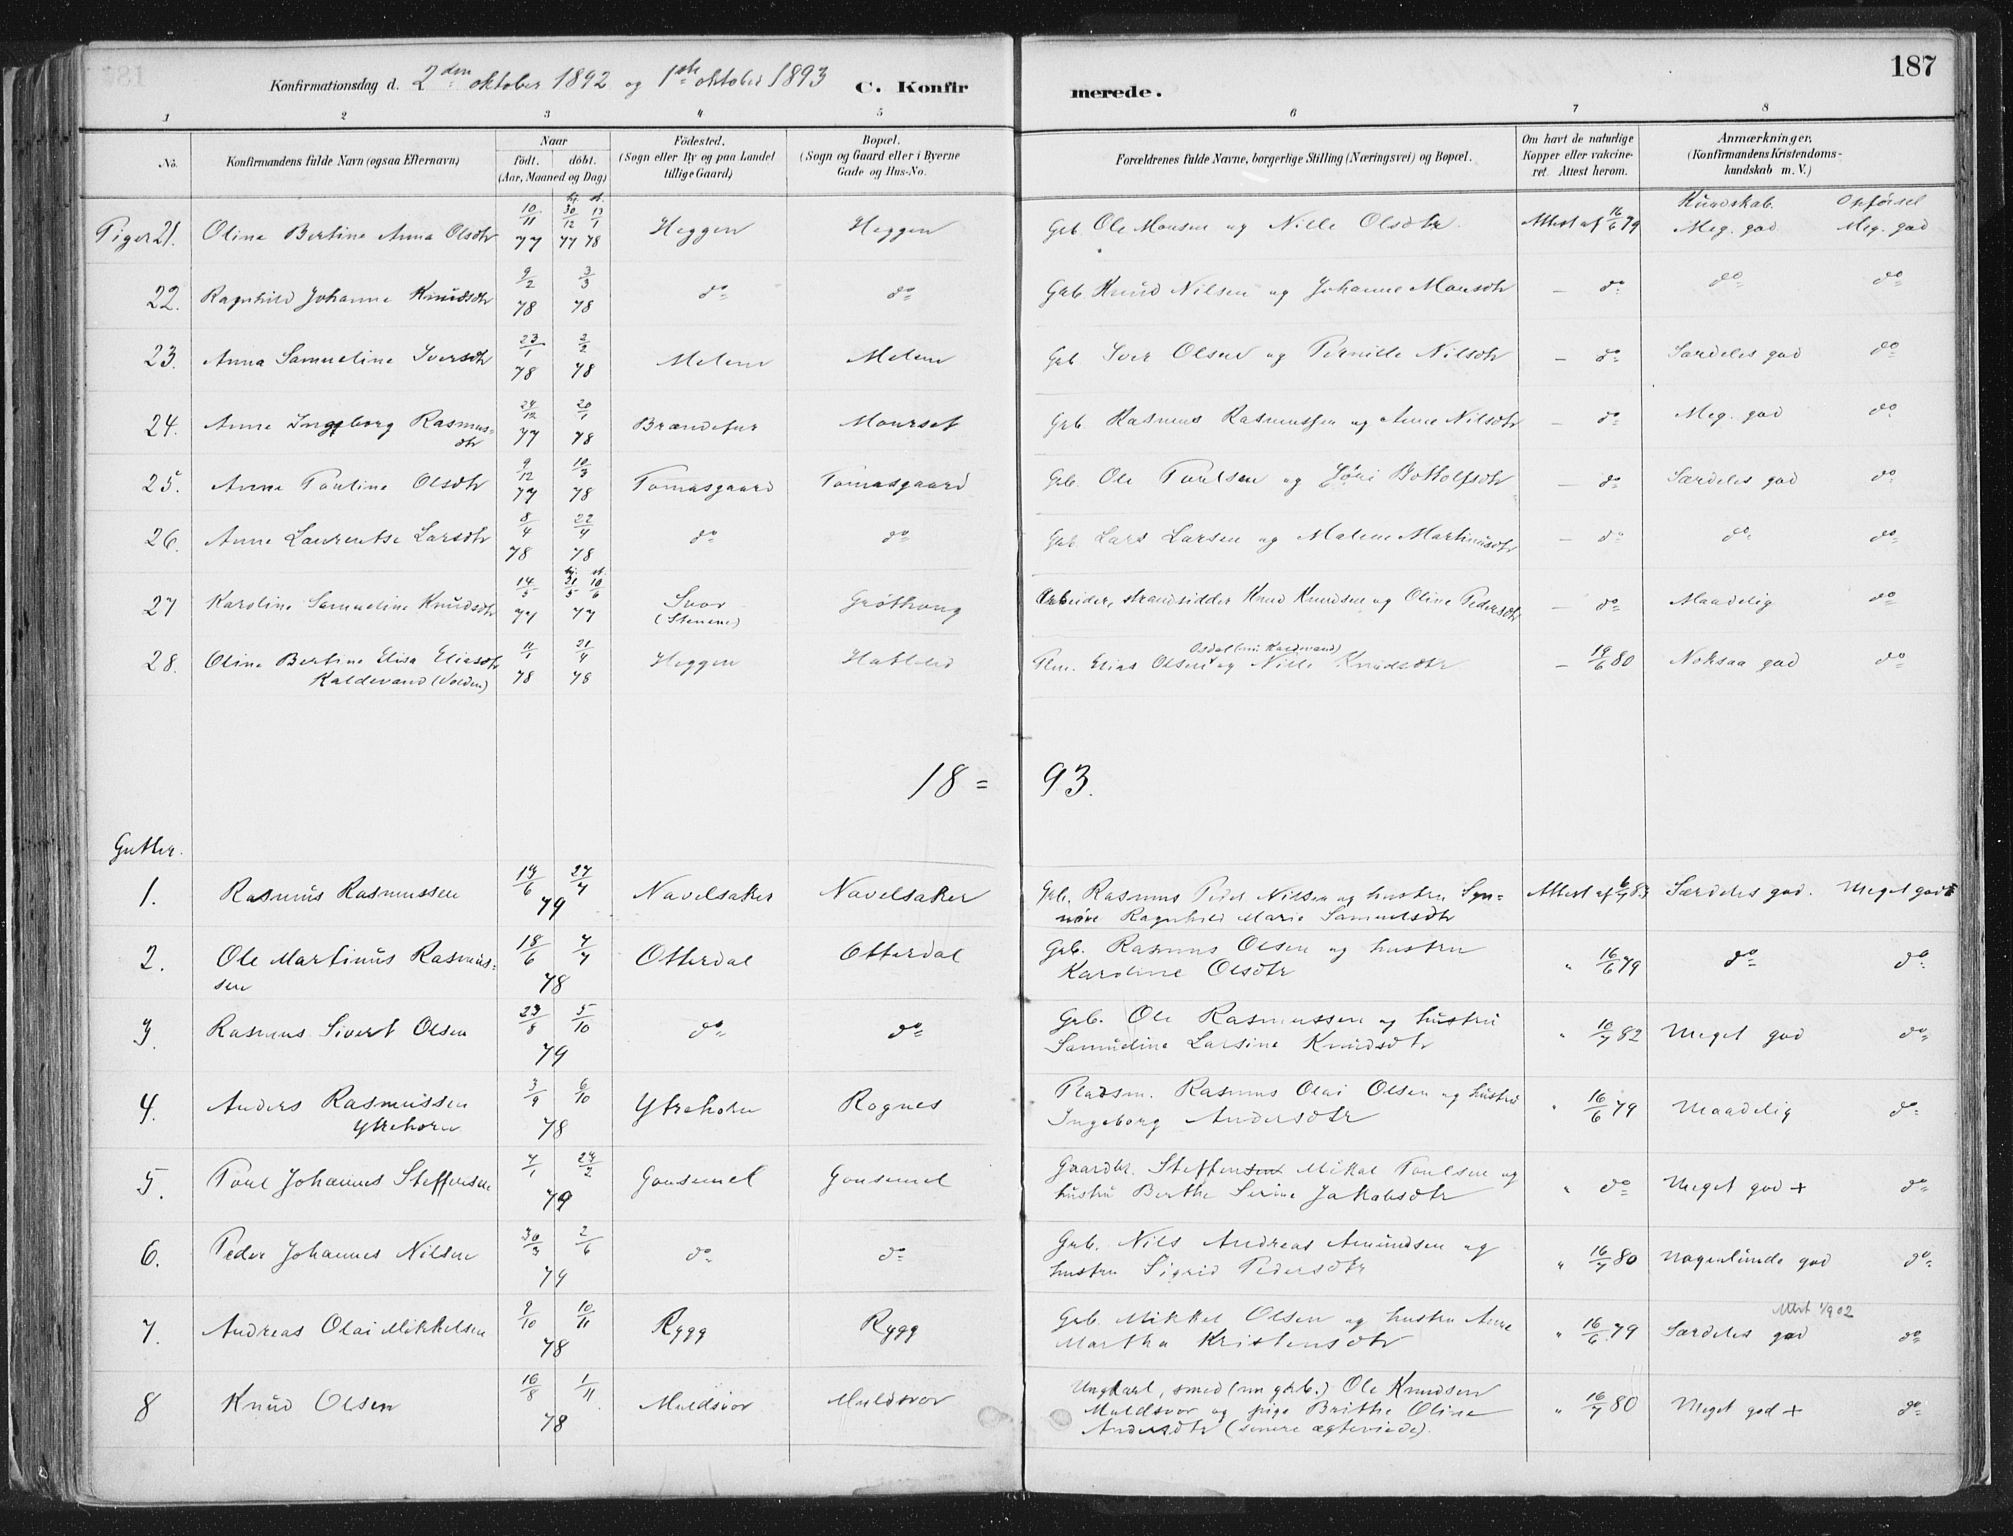 Konfirmationsdag d. 2den oktober 1892 og 1ste oktober 1893 C. Konfirmerede. 187
1 2 3 4 5 6 7 8
No. Konfirmandens fulde Navn (ogsaa Efternavn) Naar födt. döbt. (Aar, Maaned og Dag) Födested. (Sogn eller By og paa Landet tillige Gaard) Bopæl. (Sogn og Gaard eller i Byerne Gade og Hus-No. Forældrenes fulde Navne, borgerlige Stilling (Næringsvei) og Bopæl. Om havt de naturlige Kopper eller vakcineret. Attest herom. Anmærkninger. (Konfirmandens Kristendomskundskab m. V.)
Kundskab Opførsel
Piger 21. Oline Bertine Anna Olsdtr 10/11 77 hj. 30/12 77 st. 13/1 78 Heggen Heggen Grb. Ole Monsen og Nille Olsdtr. Attest af 16/6 79 Meg. god Meg. god
22. Ragnhild Johanne Knudsdtr 9/2 78 3/3 78 do do Grb. Knud Nilsen og Johanne Monsdtr — do do do
23. Anna Samueline Iversdtr 23/1 78 2/2 78 Melem Melem Grb. Iver Olsen og Pernille Nilsdtr — do Særdeles god do
24. Anne Ingeborg Rasmusdtr 24/12 77 20/1 78 Mourset Grb. Rasmus Rasmussen og Anne Nilsdtr — do Meg. god do
25. Anne Pauline Olsdtr 9/12 77 10/3 78 Tomasgaard Tomasgaard Grb. Ole Poulsen og Jøri Bottolfsdtr — do Særdeles god do
26. Anne Laurentse Larsdtr 8/4 78 22/4 78 do do Grb. Lars Larsen og Malene Martinusdtr — do do do
27 Karoline Samueline Knudsdtr 14/5 77 hj. 21/5 st. 10/6 77 Svor (Stenene) Grøthong Arbeider, strandsidder Knud Knudsen og Oline Pedersdtr — do Maadelig do
28. Oline Bertine Elisa Eliasdtr Kaldevand (Volden) 11/1 78 21/4 78 Heggen Hatleli Elias Olsen og Nille Knudsdtr — 19/6 80 Noksaa god do
18 = 93.
Gutter.
1. Rasmus Rasmussen 19/6 27/7 79 Navelsaker Navelsaker Grb. Rasmus Peder Nilsen og hustru Synnøve Ragnhild Marie Samuelsdtr Attest af 6/7 83 Særdeles god. Meget god
2. Ole Martinus Rasmussen 18/6 7/7 78 Otterdal Otterdal Grb. Rasmus Olsen og hustru Karoline Olsdtr " 16/6 79 do do
3. Rasmus Sivert Olsen 23/8 5/10 79 do do Grb. Ole Rasmussen og hustru Samueline Larsine Knudsdtr " 10/7 82 Meget god do
4. Anders Rasmussen Ytrehorn 3/9 6/10 78 Ytrehorn Rognes Pladsm. Rasmus Olai Olsen og hustru Ingeborg Andersdtr " 16/6 79 Maadelig do
5. Poul Johannes Steffensen 7/1 24/2 79 Gausemel Gausemel Gaardbr. Steffen Mikal Poulsen og hustru Berthe Serine Jakobsdtr " do Meget god + do
6. Peder Johannes Nilsen 30/3 2/6 79 do do Grb. Nils Andreas Amundsen og hustru Sigrid Pedersdtr " 16/7 80 Nogenlunde god do
7. Andreas Olai Mikkelsen 9/10 10/11 78 Rygg Rygg Grb. Mikkel Olsen og hustru Anne Martha Kristensdtr " 16/6 79 Attest 1/9 02 Særdeles god do
8 Knud Olsen 16/8 1/11 78 Muldsvor Muldsvor Ungkarl, smed (nu grb.) Ole Knudsen Muldsvor og pige Brithe Oline Andersdtr (senere ægteviede). " 16/7 80 Meget god + do